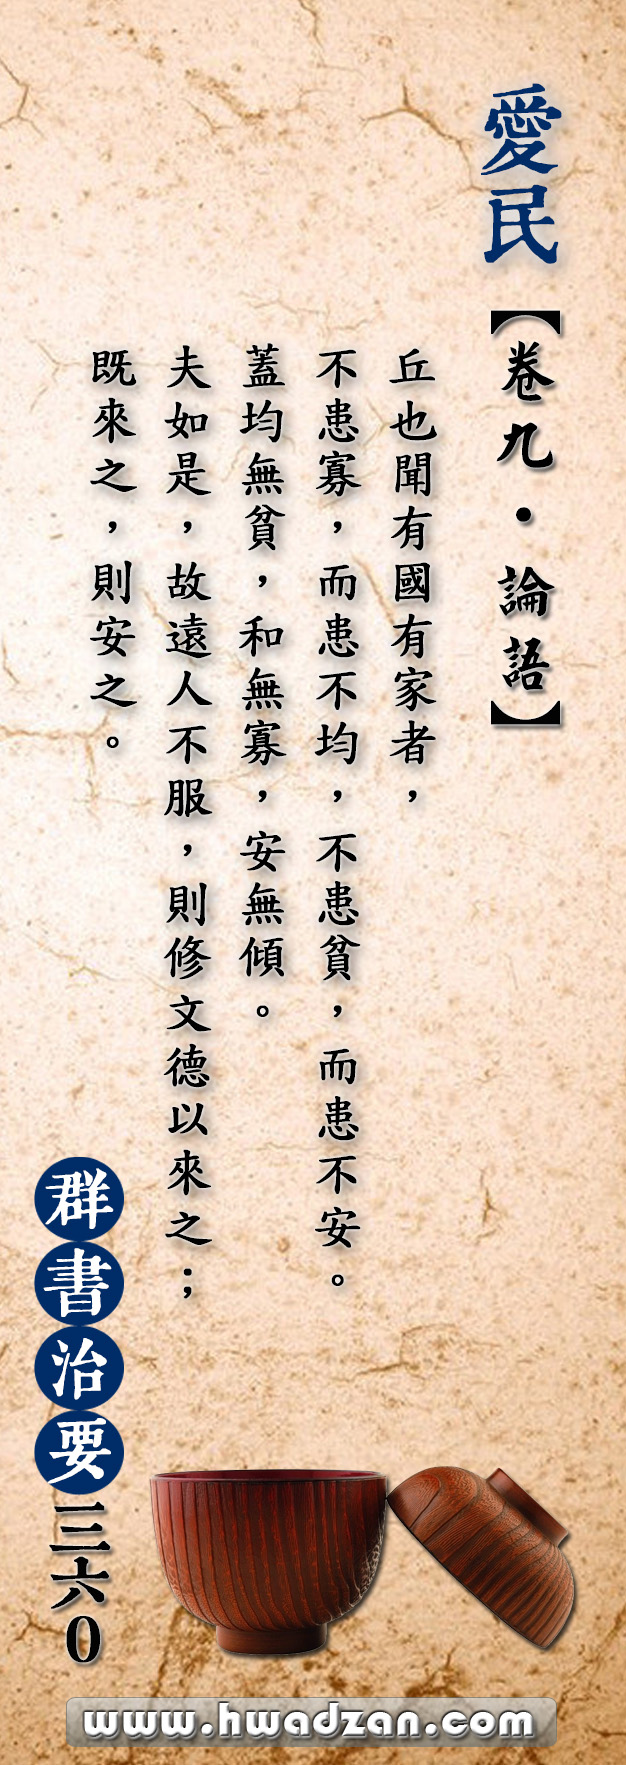 愛民
【卷九・論語】
丘也聞有國有家者，
不患寡，而患不均，不患貧，而患不安。
蓋均無貧，和無寡，安無傾。
夫如是，故遠人不服，則修文德以來之；
既來之，則安之。
群書治要三六0
www.hwadzan.com